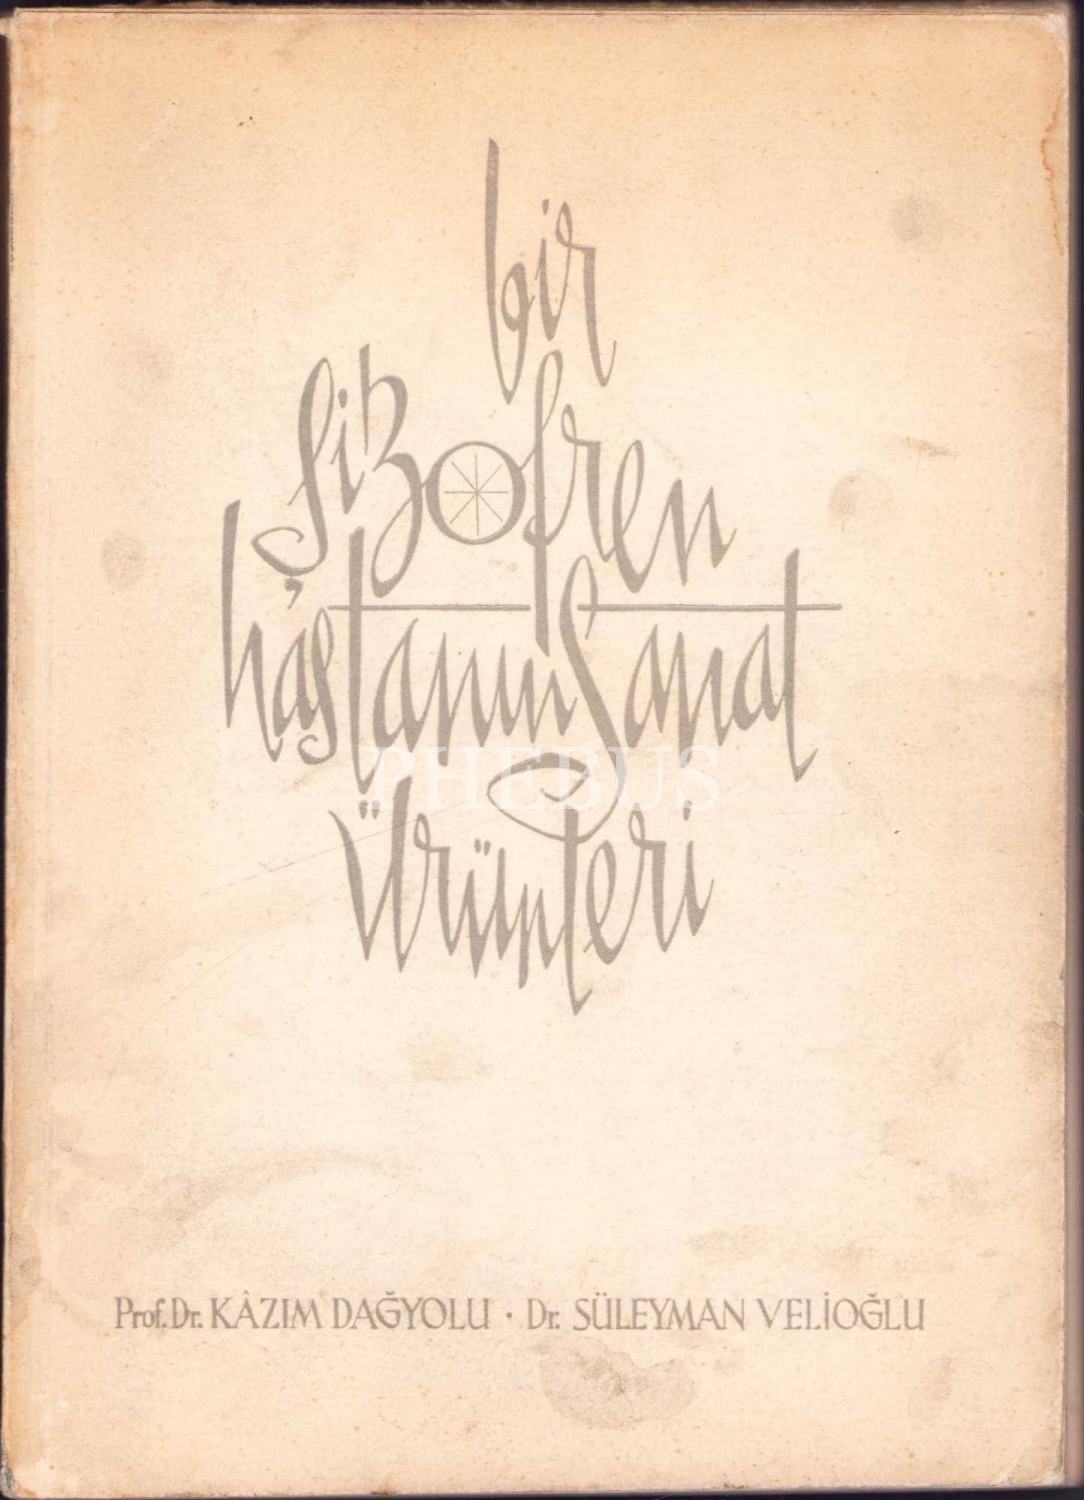 bir
şizofren
hastanın Sanat
PHEBUS
Ürünleri
Prof. Dr. KÂZIM DAĞYOLU · Dr. SÜLEYMAN VELİOĞLU